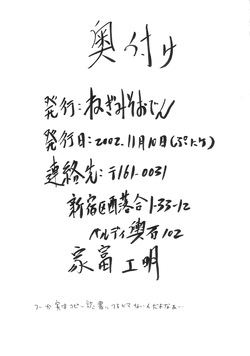 奥付け
発行：ねぎみそおでん
発行日：2002.11月10日(ぷにケ)
連絡先：〒161-0031
新宿区西落合1-33-12
ベルディ奥石102
家富工明
つーか実はコピー誌書いてないんだよなぁ…